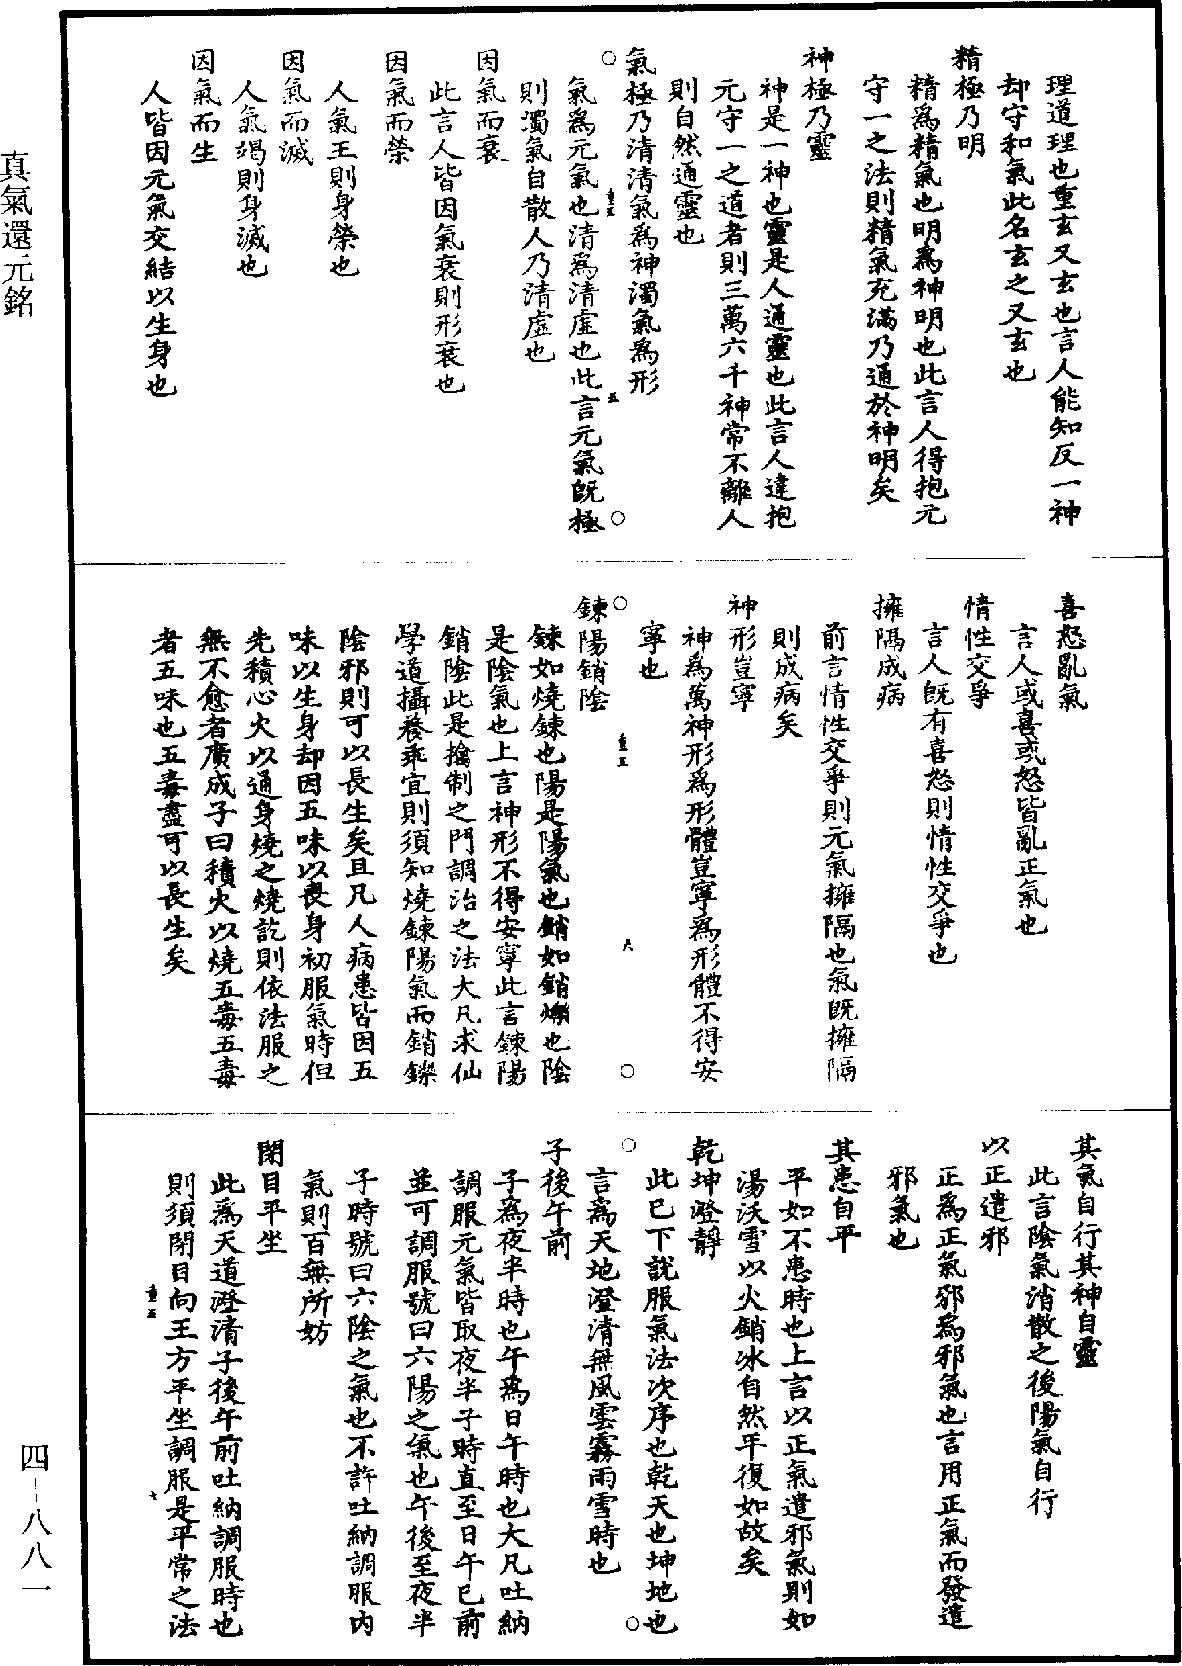 理道理也重玄又玄也言人能知反一神
却守和氣此名玄之又玄也
精極乃明
精爲精氣也明爲神明也此言人得抱元
守一之法則精氣充滿乃通於神明矣
神極乃靈
神是一神也靈是人通靈也此言人達抱
元守一之道者則三萬六千神常不離人
則自然通靈也
氣極乃清清氣爲神濁氣爲形
氣爲元氣也清爲清虛也此言元氣旣極
則濁氣自散人乃清虛也
因氣而衰
此言人皆因氣衰則形衰也
因氣而榮
人氣王則身榮也
因氣而滅
人氣竭則身滅也
因氣而生
人皆因元氣交結以生身也
喜怒亂氣
言人或喜或怒皆亂正氣也
情性交爭
言人旣有喜怒則情性交爭也
擁隔成病
前言情性交爭則元氣擁隔也氣旣擁隔
則成病矣
神形豈寧
神爲萬神形爲形體豈寧爲形體不得安
寧也
鍊陽銷陰
鍊如燒鍊也陽是陽氣也銷如銷爍也陰
是陰氣也上言神形不得安寧此言鍊陽
銷陰此是擒制之門調治之法大凡求仙
學道攝養乖宜則須知燒鍊陽氣而銷鑠
陰邪則可以長生矣且凡人病患皆因五
味以生身却因五味以喪身初服氣時但
先積心火以通身燒之燒訖則依法服之
無不愈者廣成子曰積火以燒五毒五毒
者五味也五毒盡可以長生矣
其氣自行其神自靈
此言陰氣消散之後陽氣自行
以正遣邪
正爲正氣邪爲邪氣也言用正氣而發遣
邪氣也
其患自平
平如不患時也上言以正氣遣邪氣則如
湯沃雪以火銷冰自然平復如故矣
乾坤澄靜
此已下說服氣法次序也乾天也坤地也
言爲天地澄清無風雲霧雨雪時也
子後午前
子爲夜半時也午爲日午時也大凡吐納
調服元氣皆取夜半子時直至日午已前
並可調服號曰六陽之氣也午後至夜半
子時號曰六陰之氣也不許吐納調服內
氣則百無所妨
閉目平坐
此爲天道澄清子後午前吐納調服時也
則須閉目向王方平坐調服是平常之法
真氣還元銘
四-八八一